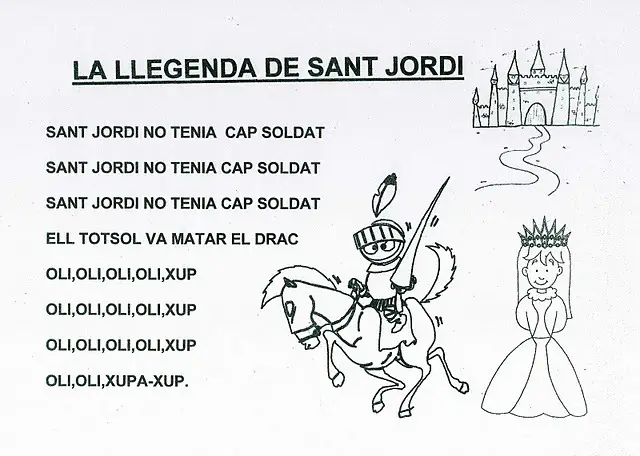 LA LLEGENDA DE SANT JORDI
SANT JORDI NO TENIA CAP SOLDAT
SANT JORDI NO TENIA CAP SOLDAT
SANT JORDI NO TENIA CAP SOLDAT
ELL TOTSOL VA MATAR EL DRAC
OLI,OLI,OLI,OLI,XUP
OLI,OLI,OLI,OLI,XUP
OLI,OLI,OLI,OLI,XUP
OLI,OLI,XUPA-XUP.